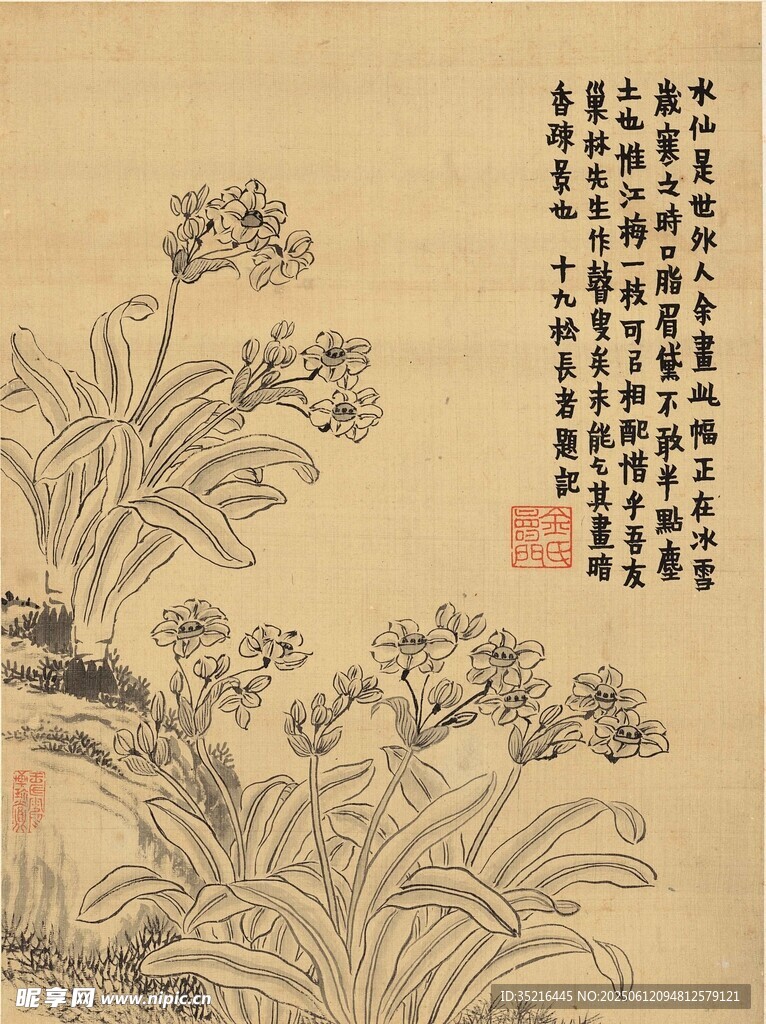 水仙是世外人余畫此幅正在冰雪
歲寒之時口脂眉黛不敢半點塵
土也惟江梅一枝可㠯相配惜乎吾友
巢林先生作瞽叟矣未能乞其畫暗
香疎景也 十九松長者題記
金氏
壽門
昵享网 www.nipic.cn
ID:35216445 NO:20250612094812579121